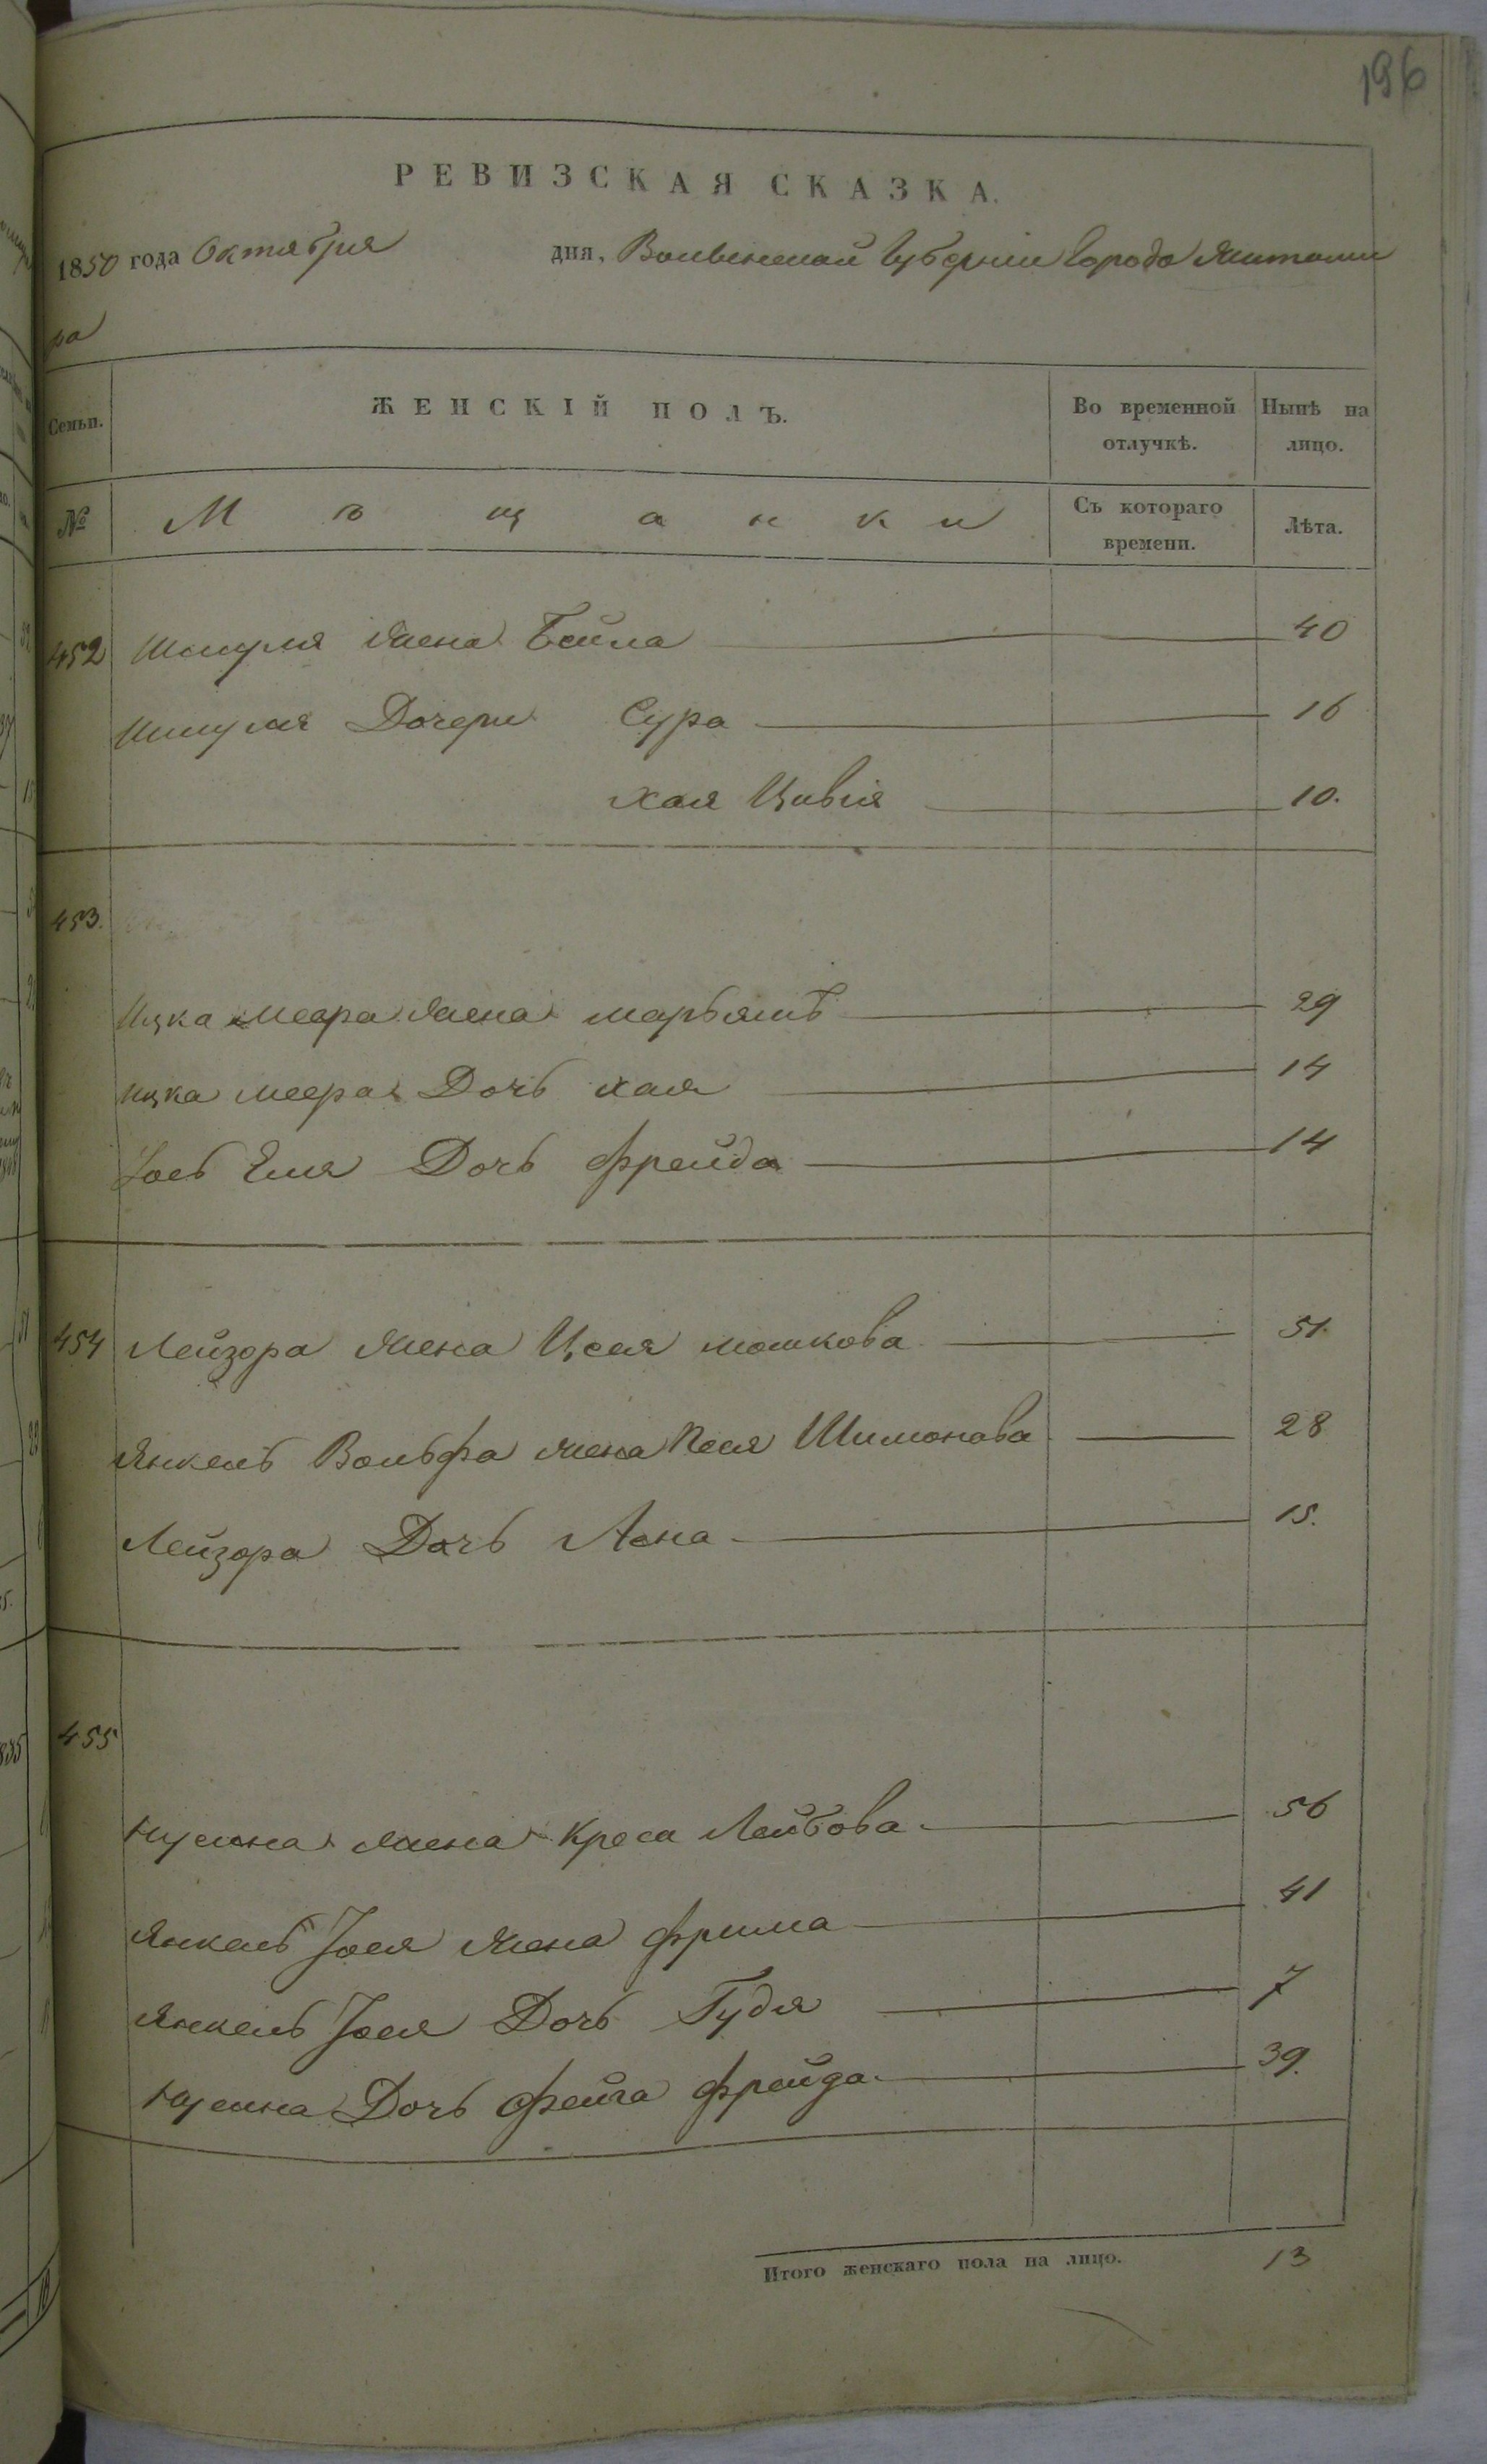 196
РЕВИЗСКАЯ СКАЗКА.
1850 года Октября дня, Волынской Губернии Города Житоми
ра
Семьи. ЖЕНСКІЙ ПОЛЪ. Во временной отлучкѣ. Нынѣ на лицо.
№ Мѣщанки Съ котораго времени. Лѣта.
452 Шмуля жена Бейла 40
Шмуля Дочери Сура 16
Хая Цивія 10.
453.
Ицка Меера жена Марьямъ 29
Ицка Меера Дочь Хая 14
Дочь Фрейда 14
454 Лейзора жена Цеся Мошкова 51.
Янкель Вольфа жена Песя Шимонова 28
Лейзора Дочь Асна 15.
455
Нусина жена Креса Лейбова 56
Янкель Іося жена Фрима 41
Янкель Іося Дочь Гудя 7
Нусина Дочь Фейга Фрейда 39.
Итого женскаго пола на лицо. 13